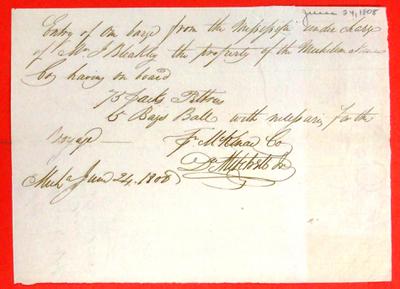 June 24, 1808
Entry of one barge from the Missisipi under charge
of Mr J Bleakley the property of the
Co having on board
75 Packs Peltries
6 Bags Ball with necessaries for the
Voyage —
Co
D Mitchell
June 24, 1808